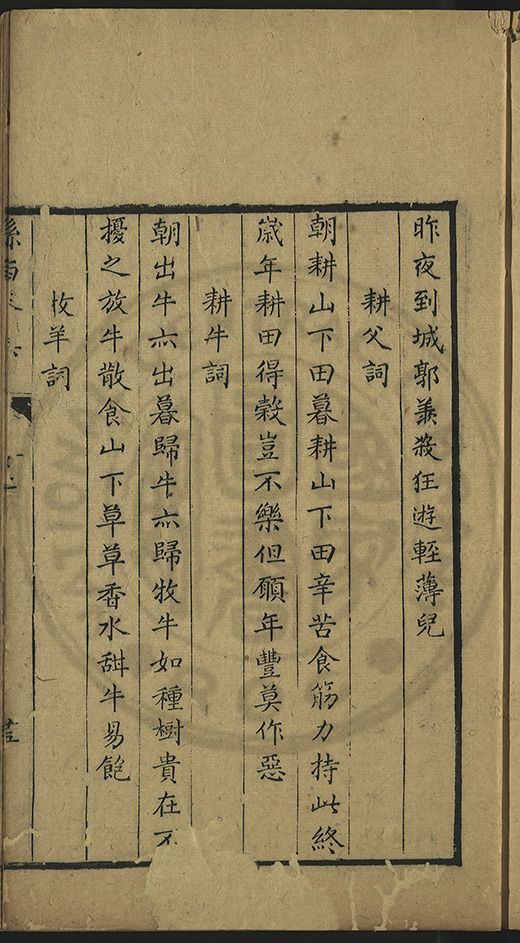 昨夜到城郭羨殺狂遊輕薄兒
耕父詞
朝耕山下田暮耕山下田辛苦食筋力持此終
歲年耕田得穀豈不樂但願年豐莫作惡
耕牛詞
朝出牛亦出暮歸牛亦歸牧牛如種樹貴在不
擾之放牛散食山下草草香水甜牛易飽
牧羊詞